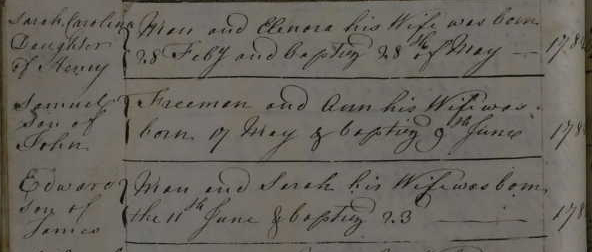 Sarah Carolina
Daughter
of Henry
Man and Elenora his Wife was born
28 Feby and baptizd 28th of May — 178
Samuel
Son of
John
Freeman and Ann his Wife was
born 17 May & baptizd 9th June 178
Edward
Son of
James
Man and Sarah his Wife was born
the 11th June & baptizd 23 — 178